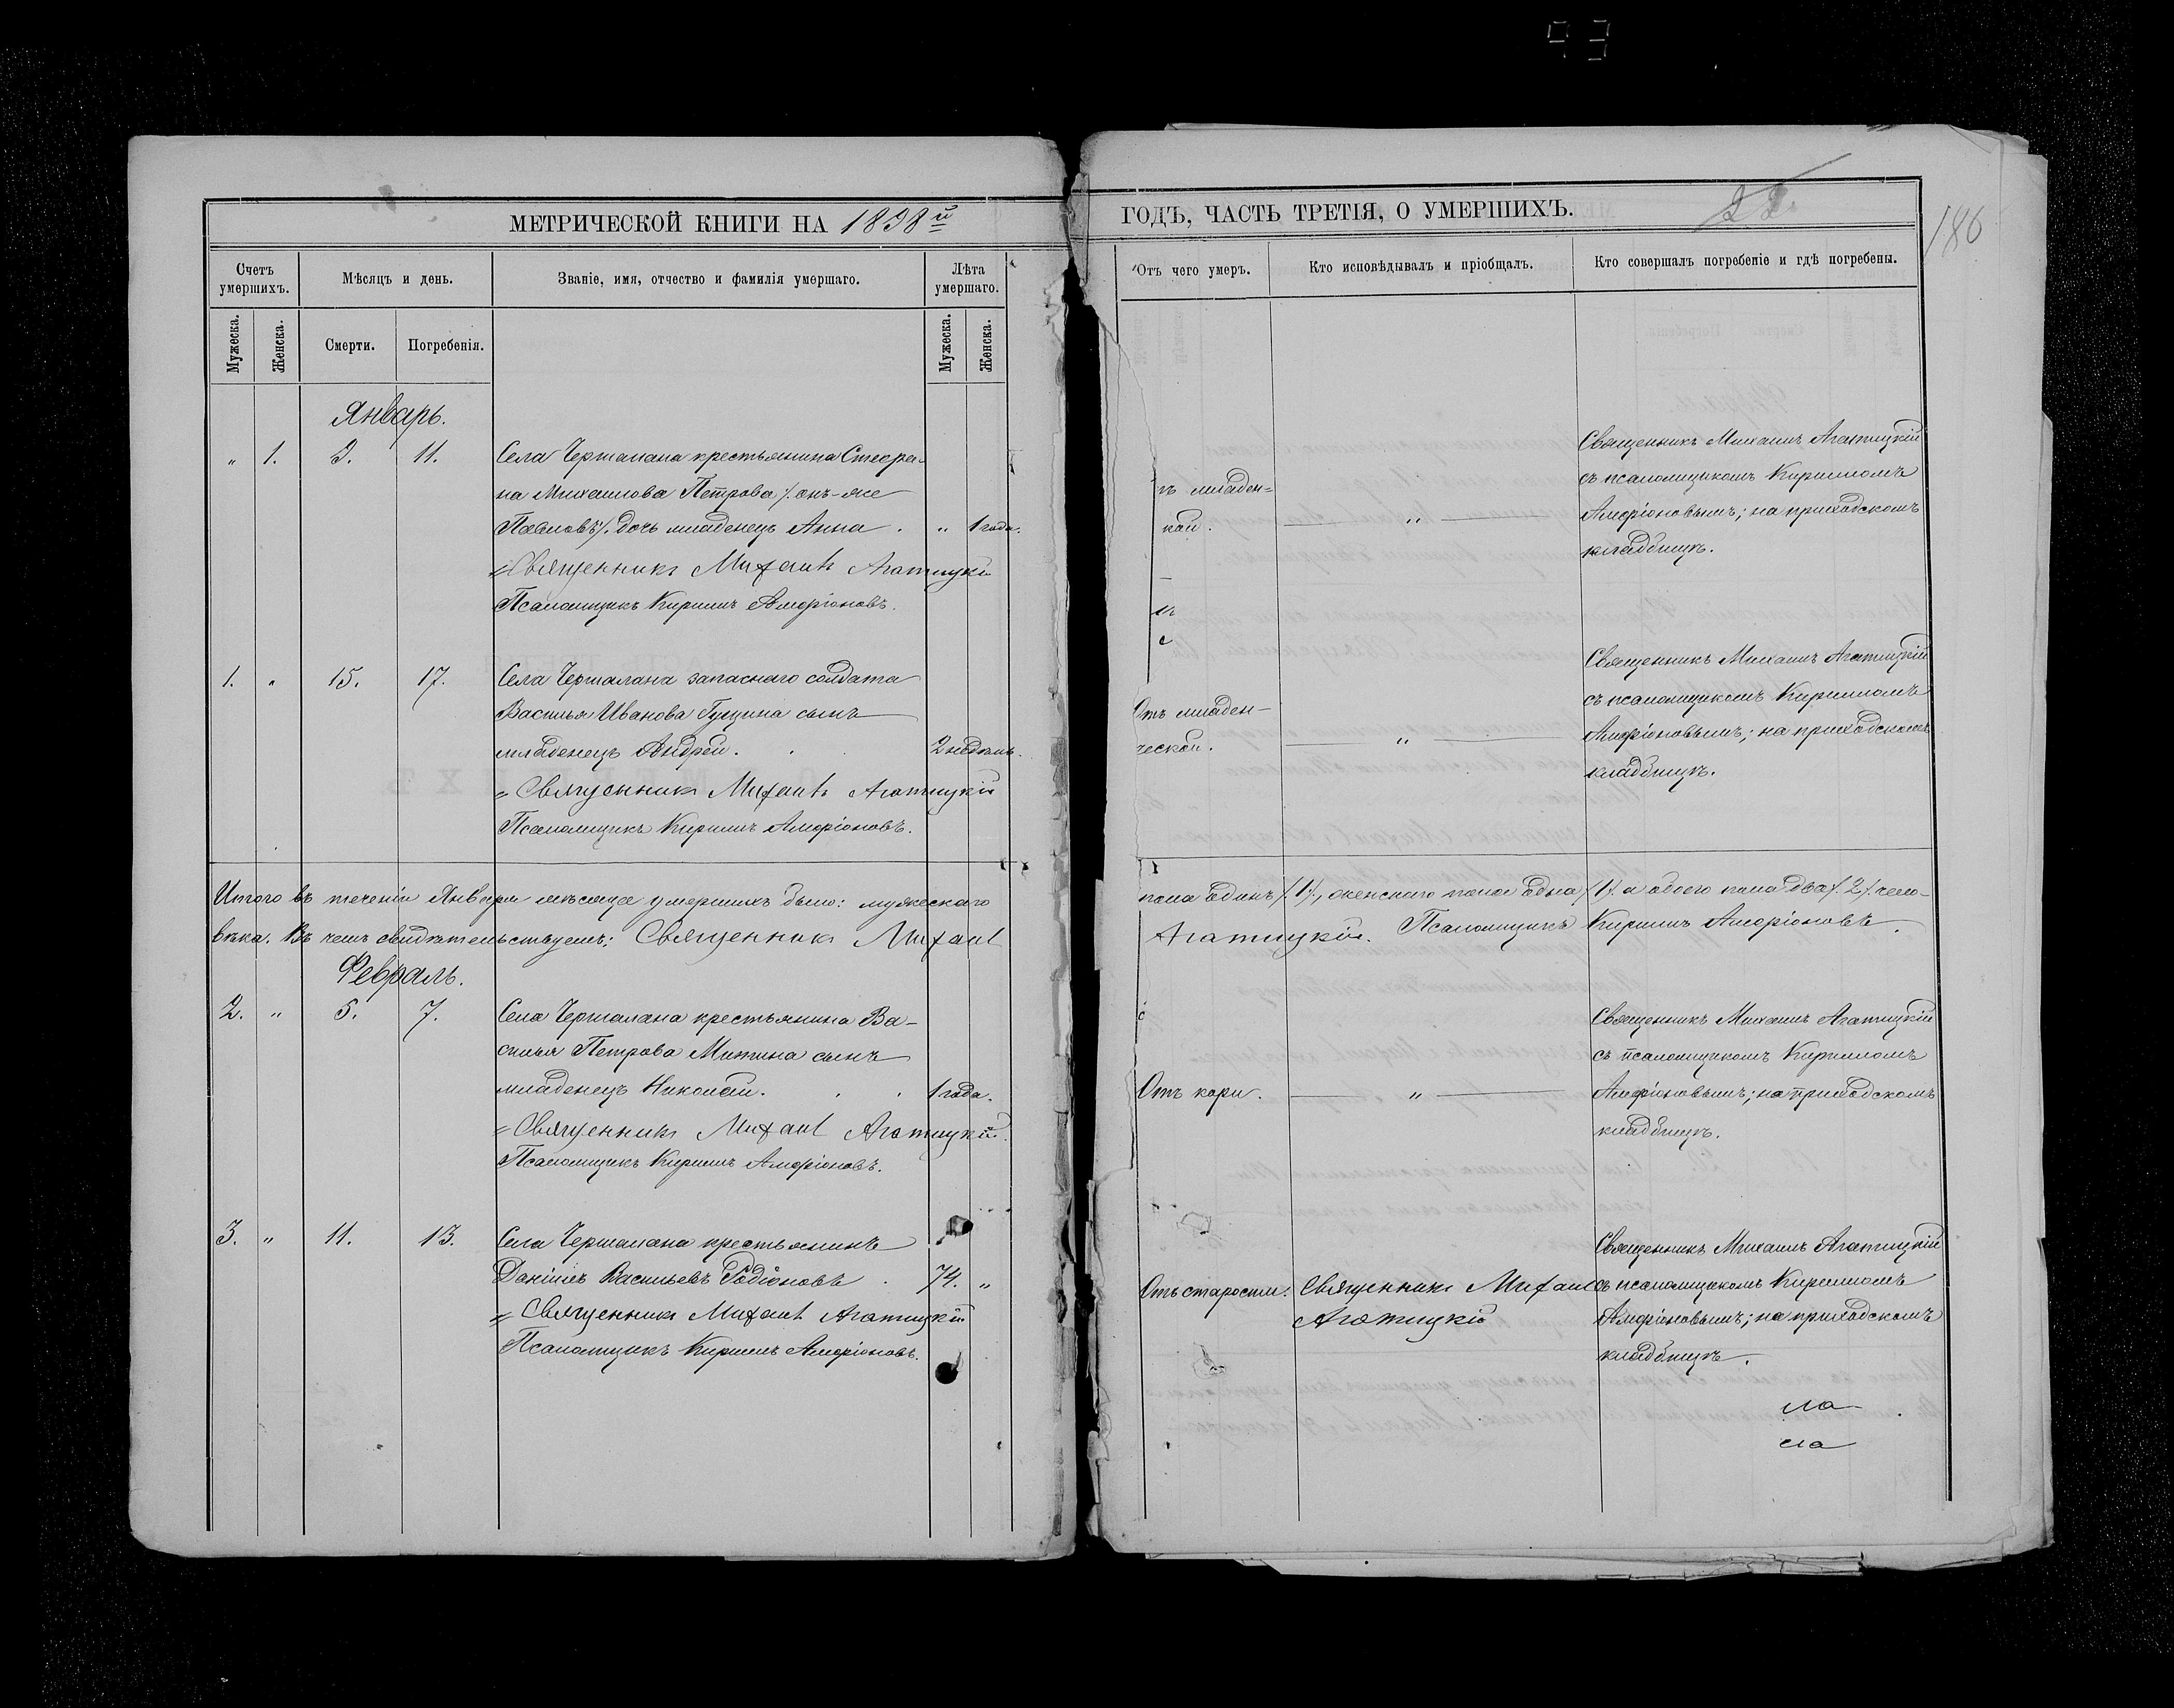 93
МЕТРИЧЕСКОЙ КНИГИ НА 1898й
ГОДЪ, ЧАСТЬ ТРЕТІЯ, О УМЕРШИХЪ.
186
Счетъ умершихъ.
Мѣсяцъ и день.
Званіе, имя, отчество и фамилія умершаго.
Лѣта умершаго.
Отъ чего умеръ.
Кто исповѣдывалъ и пріобщалъ.
Кто совершалъ погребеніе и гдѣ погребены.
Мужеска.
Женска.
Смерти.
Погребенія.
Мужеска.
Женска.
Январь.
„ 1. 11.
Села Чершалана крестьянина Стефа-
на Михаилова Петрова /. онъ-же
Павловъ/. дочь младенецъ Анна . „ 1 года.
Священникъ Михаилъ Агатицкій
Псаломщикъ Кириллъ Амфіоновъ.
ъ младен=
кой.
„
Священникъ Михаилъ Агатицкій
съ псаломщикомъ Кирилломъ
Амфіоновымъ; на приходскомъ
кладбищѣ.
1. „ 15. 17.
Села Чершалана запаснаго солдата
Василья Иванова Гущина сынъ
младенецъ Андрей. 2 недѣль.
Священникъ Михаилъ Агатицкій
Псаломщикъ Кириллъ Амфіоновъ.
Отъ младен-
ческой.
„
Священникъ Михаилъ Агатицкій
съ псаломщикомъ Кирилломъ
Амфіоновымъ; на приходскомъ
кладбищѣ.
Итого въ теченіи Января мѣсяца умершихъ было: мужескаго
пола одинъ /.1/., женскаго пола одна /.1/. а обоего пола два /.2/. чело-
вѣка. Въ чемъ свидѣтельствуемъ: Священникъ Михаилъ
Агатицкій. Псаломщикъ Кириллъ Амфіоновъ.
Февраль.
2. „ 5. 7.
Села Чершалана крестьянина Ва-
силья Петрова Митина сынъ
младенецъ Николай. 1 года.
Священникъ Михаилъ Агатицкій.
Псаломщикъ Кириллъ Амфіоновъ.
Отъ кори.
„
Священникъ Михаилъ Агатицкій
съ псаломщикомъ Кирилломъ
Амфіоновымъ; на приходскомъ
кладбищѣ.
3. „ 11. 13.
Села Чершалана крестьянинъ
Даніилъ Васильевъ Родіоновъ . 74. „
Священникъ Михаилъ Агатицкій
Псаломщикъ Кириллъ Амфіоновъ.
Отъ старости.
Священникъ Михаилъ
Агатицкій
Священникъ Михаилъ Агатицкій
съ псаломщикомъ Кирилломъ
Амфіоновымъ; на приходскомъ
кладбищѣ.